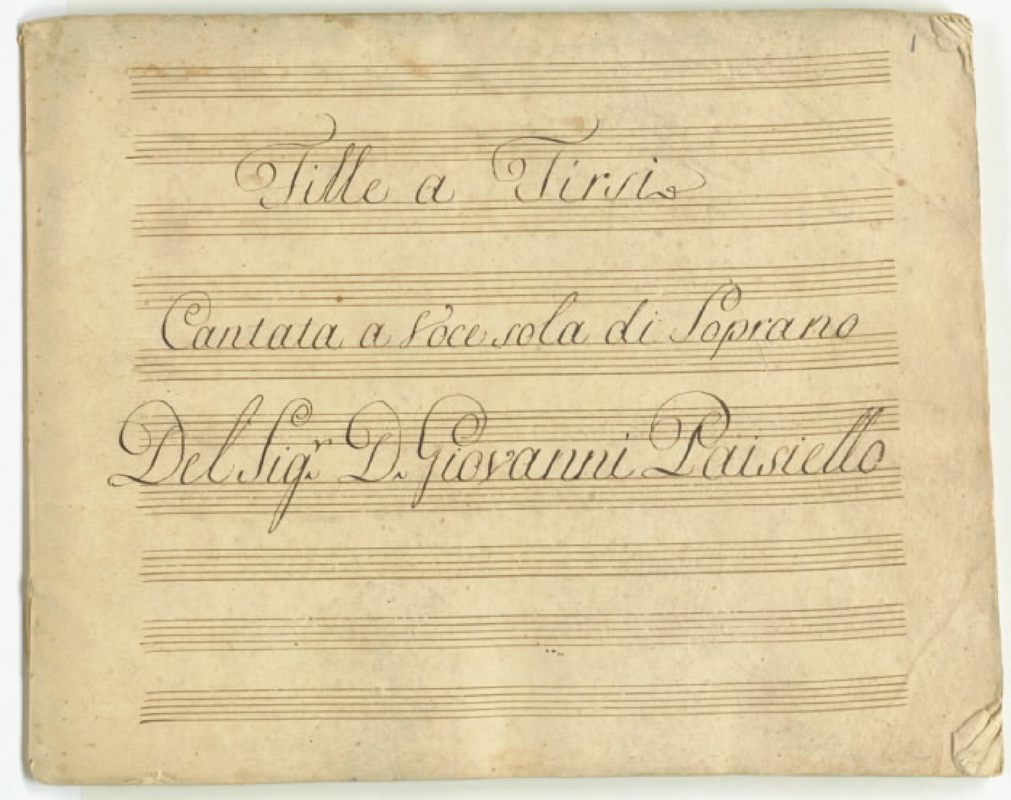 1
Fille a Tirsi
Cantata a Voce sola di Soprano
Del Sig.r D. Giovanni Paisiello